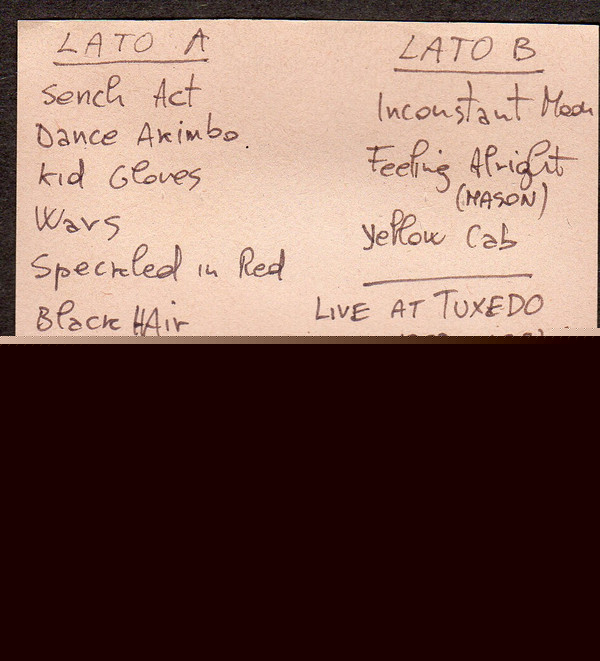 LATO A
Sench Act
Dance Akimbo.
Kid Gloves
Wars
Speckled in Red
Black HAir
LATO B
Inconstant Moon
Feeling Alright
(MASON)
Yellow Cab
LIVE AT TUXEDO